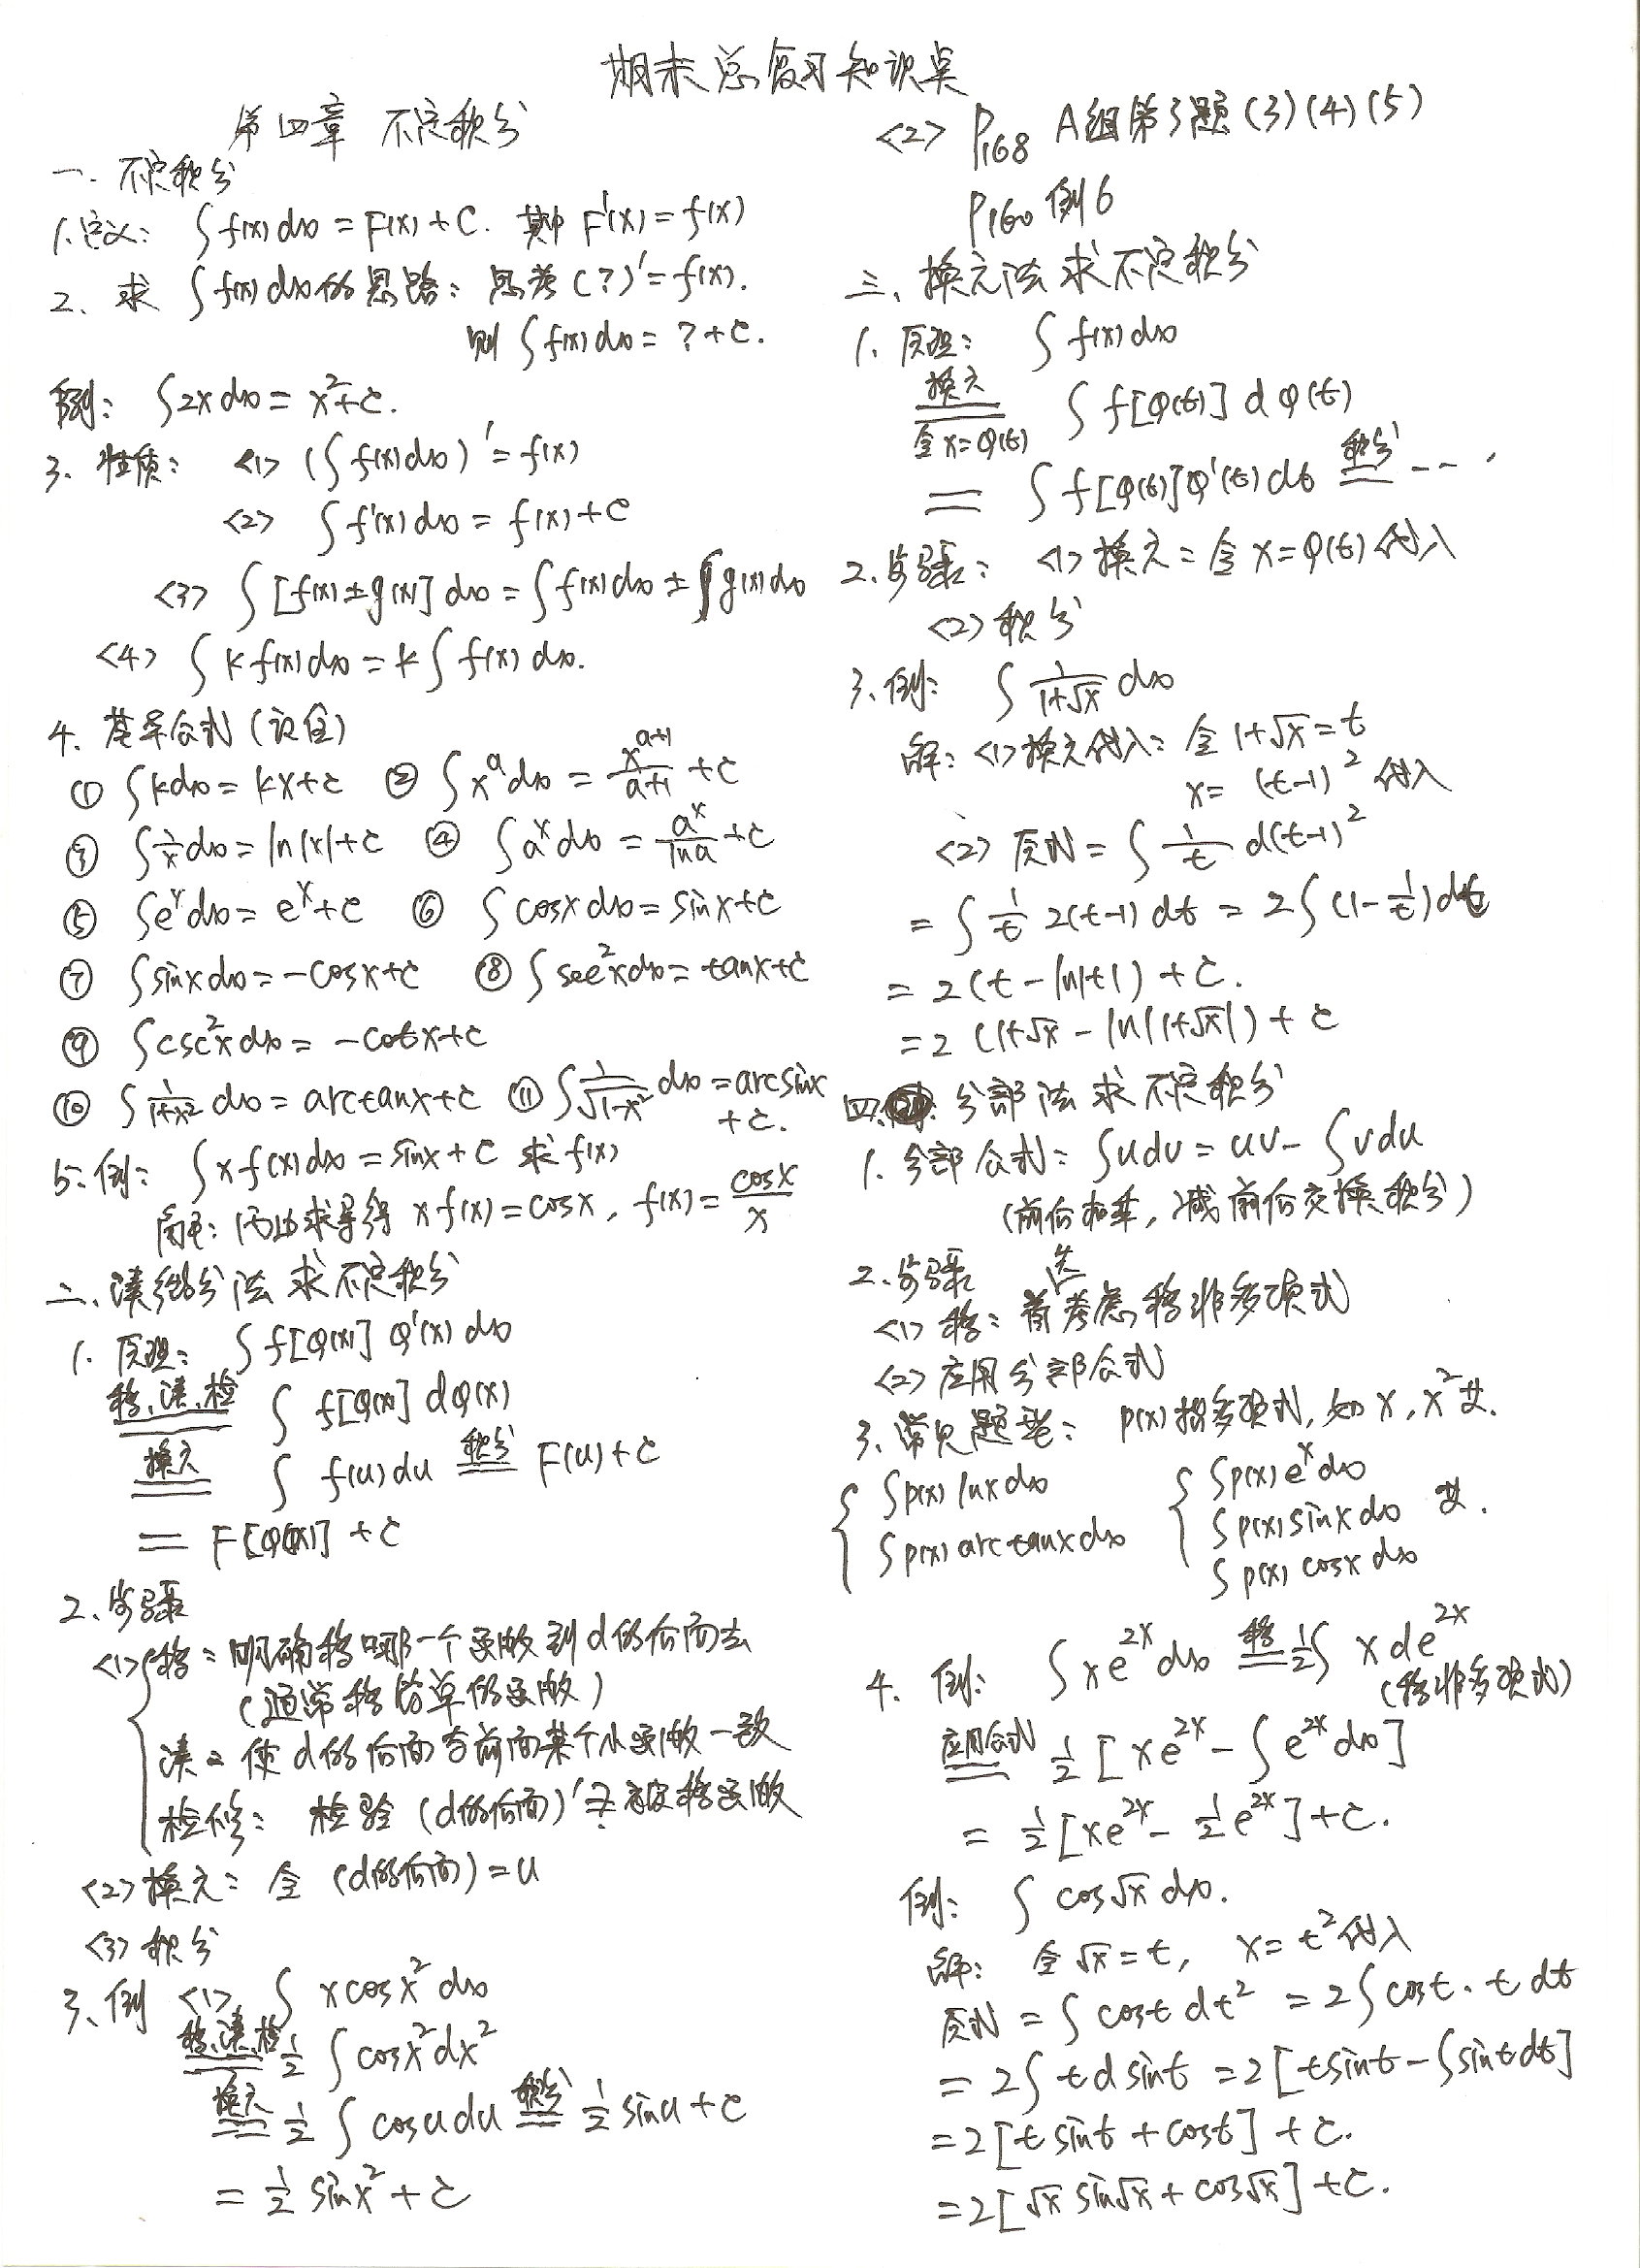 期末总复习知识点
第四章 不定积分
一、不定积分
1.定义: ∫f(x)dx = F(x)+C. 其中 F'(x)=f(x)
2、求 ∫f(x)dx的思路: 思考(?)'=f(x).
则∫f(x)dx = ?+C.
例: ∫2xdx = x²+C.
3、性质: <1> (∫f(x)dx)'=f(x)
<2> ∫f'(x)dx = f(x)+C
<3> ∫[f(x)±g(x)]dx = ∫f(x)dx ± ∫g(x)dx
<4> ∫kf(x)dx = k∫f(x)dx.
4、基本公式(记住)
① ∫kdx = kx+C ② ∫x^a dx = x^(a+1)/(a+1) + C
③ ∫1/x dx = ln|x|+C ④ ∫a^x dx = a^x/lna + C
⑤ ∫e^x dx = e^x+C ⑥ ∫cosxdx = sinx+C
⑦ ∫sinxdx = -cosx+C ⑧ ∫sec²xdx = tanx+C
⑨ ∫csc²xdx = -cotx+C
⑩ ∫1/(1+x²) dx = arctanx+C ⑪ ∫1/√(1-x²) dx = arcsinx
+C.
5、例: ∫xf(x)dx = sinx+C 求f(x)
解: 两边求导得 xf(x)=cosx, f(x)=cosx/x
二、凑微分法求不定积分
1. 原理: ∫f[φ(x)]φ'(x)dx
移、凑、检 ∫f[φ(x)]dφ(x)
换元 ∫f(u)du 积分 F(u)+C
= F[φ(x)]+C
2、步骤
<1> 移: 明确移哪一个函数到d的后面去
(通常移简单的函数)
凑: 使d的后面与前面某个小函数一致
检修: 检验(d的后面)' 被移函数
<2> 换元: 令(d的后面)=u
<3> 积分
3、例 <1> ∫xcosx²dx
移、凑、检 1/2 ∫cosx²dx²
换元 1/2 ∫cosudu 积分 1/2 sinu+C
= 1/2 sinx²+C
<2> P168 A组第3题(3)(4)(5)
P160 例6
三、换元法求不定积分
1. 原理: ∫f(x)dx
换元 令x=φ(t) ∫f[φ(t)]dφ(t)
= ∫f[φ(t)]φ'(t)dt 积分 ---.
2、步骤: <1> 换元: 令x=φ(t)代入
<2> 积分
3、例: ∫1/(1+√x) dx
解: <1> 换元代入: 令1+√x=t
x=(t-1)² 代入
<2> 原式 = ∫1/t d(t-1)²
= ∫1/t 2(t-1)dt = 2∫(1-1/t)dt
= 2(t-ln|t|)+C.
= 2(1+√x-ln|1+√x|)+C
四、分部法求不定积分
1. 分部公式: ∫udv = uv-∫vdu
(前后相乘, 减前后交换积分)
2、步骤
<1> 移: 先考虑移非多项式
<2> 应用分部公式
3、常见题型: p(x)指多项式, 如x, x²等.
{ ∫p(x)lnxdx { ∫p(x)e^x dx
∫p(x)arctanxdx ∫p(x)sinxdx 等.
∫p(x)cosxdx
4、例: ∫xe^(2x)dx 移 1/2∫xde^(2x)
(移非多项式)
应用公式 1/2[xe^(2x)-∫e^(2x)dx]
= 1/2[xe^(2x)-1/2e^(2x)]+C.
例: ∫cos√xdx.
解: 令√x=t, x=t²代入
原式 = ∫costdt² = 2∫cost·tdt
= 2∫tdsint = 2[tsint-∫sintdt]
= 2[tsint+cost]+C.
= 2[√xsin√x+cos√x]+C.